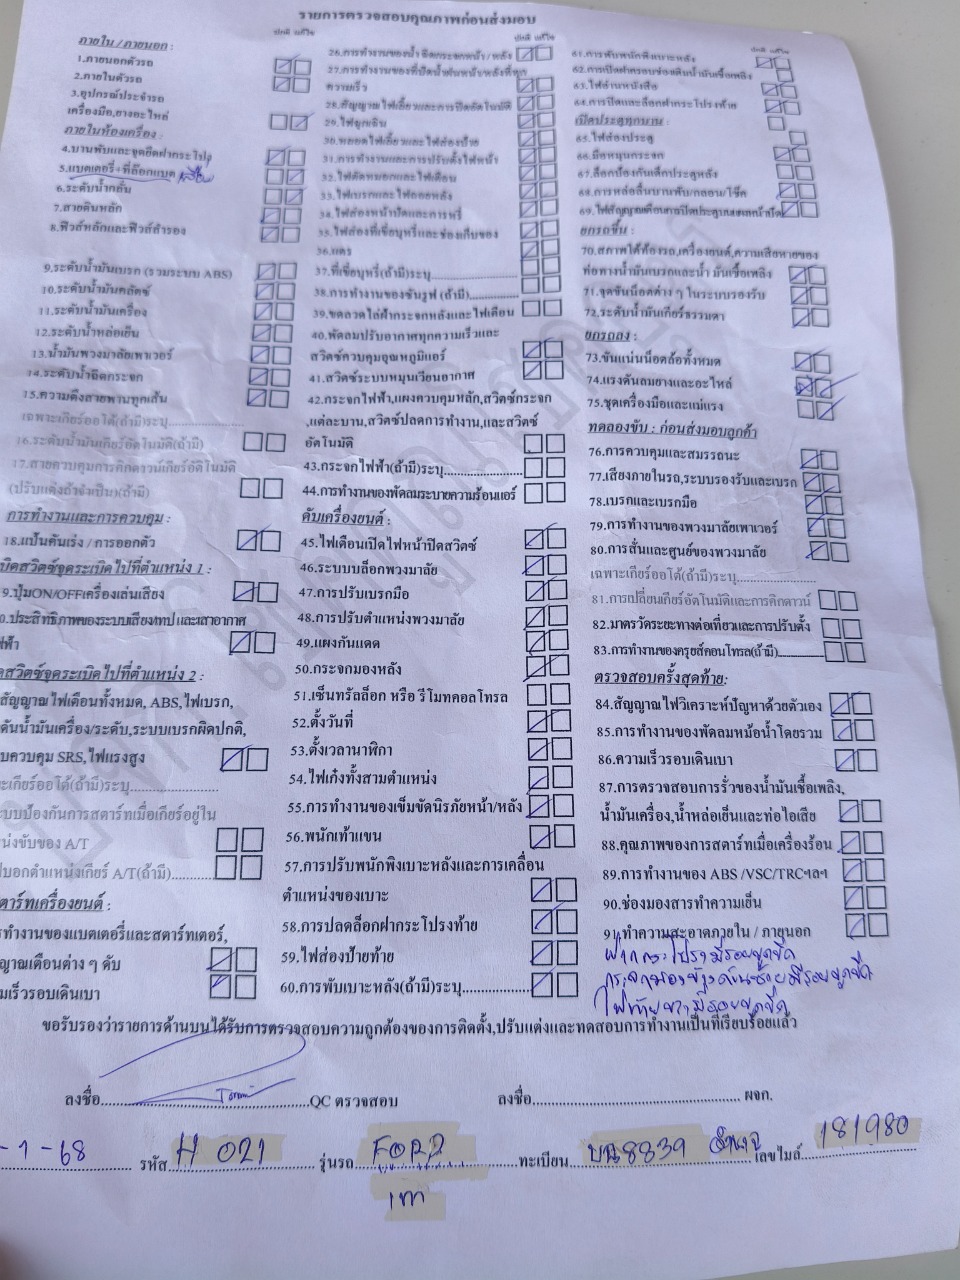 รายการตรวจสอบคุณภาพก่อนส่งมอบ
ปกติ แก้ไข
ภายใน / ภายนอก :
1.ภายนอกตัวรถ
2.ภายในตัวรถ
3.อุปกรณ์ประจำรถ
เครื่องมือ,ยางอะไหล่
ภายในห้องเครื่อง :
4.บานพับและจุดยึดฝากระโปรง
5.แบตเตอรี่+ที่ล๊อกแบต
6.ระดับน้ำกลั่น
7.สายดินหลัก
8.ฟิวส์หลักและฟิวส์สำรอง
9.ระดับน้ำมันเบรก (รวมระบบ ABS)
10.ระดับน้ำมันคลัตช์
11.ระดับน้ำมันเครื่อง
12.ระดับน้ำหล่อเย็น
13.น้ำมันพวงมาลัยเพาเวอร์
14.ระดับน้ำฉีดกระจก
15.ความตึงสายพานทุกเส้น
เฉพาะเกียร์ออโต้(ถ้ามี)ระบุ
16.ระดับน้ำมันเกียร์อัตโนมัติ(ถ้ามี)
17.สายควบคุมการคิกดาวน์เกียร์อัติโนมัติ
(ปรับแต่งถ้าจำเป็น)(ถ้ามี)
การทำงานและการควบคุม :
18.แป้นคันเร่ง / การออกตัว
บิดสวิตซ์จุดระเบิดไปที่ตำแหน่ง 1 :
9.ปุ่มON/OFFเครื่องเล่นเสียง
0.ประสิทธิภาพของระบบเสียง/เทปและเสาอากาศ
ฟ้า
ดสวิตซ์จุดระเบิดไปที่ตำแหน่ง 2 :
สัญญาณไฟเตือนทั้งหมด, ABS,ไฟเบรก,
ดันน้ำมันเครื่อง/ระดับ,ระบบเบรกผิดปกติ,
บควบคุม SRS,ไฟแรงสูง
ะเกียร์ออโต้(ถ้ามี)ระบุ
ะบบป้องกันการสตาร์ทเมื่อเกียร์อยู่ใน
น่งขับของ A/T
บอกตำแหน่งเกียร์ A/T(ถ้ามี)
ตาร์ทเครื่องยนต์ :
รทำงานของแบตเตอรี่และสตาร์ทเตอร์,
ญาณเตือนต่าง ๆ ดับ
มเร็วรอบเดินเบา
ปกติ แก้ไข
26.การทำงานของน้ำฉีดกระจกหน้า / หลัง
27.การทำงานของที่ปัดน้ำฝนหน้า/หลังที่ทุก
ความเร็ว
28.สัญญาณไฟเลี้ยวและการปิดอัตโนมัติ
29.ไฟฉุกเฉิน
31.การทำงานและการปรับตั้งไฟหน้า
32.ไฟตัดหมอกและไฟเตือน
33.ไฟเบรกและไฟถอยหลัง
34.ไฟส่องหน้าปัดและการหรี่
35.ไฟส่องที่เขี่ยบุหรี่และช่องเก็บของ
36.แตร
37.ที่เขี่ยบุหรี่(ถ้ามี)ระบุ
38.การทำงานของซันรูฟ (ถ้ามี)
39.ขดลวดไล่ฝ้ากระจกหลังและไฟเตือน
40.พัดลมปรับอากาศทุกความเร็วและ
สวิตซ์ควบคุมอุณหภูมิแอร์
41.สวิตซ์ระบบหมุนเวียนอากาศ
42.กระจกไฟฟ้า,แผงควบคุมหลัก,สวิตซ์กระจก
,แต่ละบาน,สวิตซ์ปลดการทำงาน,และสวิตซ์
อัตโนมัติ
43.กระจกไฟฟ้า(ถ้ามี)ระบุ
44.การทำงานของพัดลมระบายความร้อนแอร์
ดับเครื่องยนต์ :
45.ไฟเตือนเปิดไฟหน้าปิดสวิตซ์
46.ระบบบล็อกพวงมาลัย
47.การปรับเบรกมือ
48.การปรับตำแหน่งพวงมาลัย
49.แผงกันแดด
50.กระจกมองหลัง
51.เซ็นทรัลล็อก หรือ รีโมทคอลโทรล
52.ตั้งวันที่
53.ตั้งเวลานาฬิกา
54.ไฟเก๋งทั้งสามตำแหน่ง
55.การทำงานของเข็มขัดนิรภัยหน้า/หลัง
56.พนักเท้าแขน
57.การปรับพนักพิงเบาะหลังและการเคลื่อน
ตำแหน่งของเบาะ
58.การปลดล็อกฝากระโปรงท้าย
59.ไฟส่องป้ายท้าย
60.การพับเบาะหลัง(ถ้ามี)ระบุ
ปกติ แก้ไข
61.การพับพนักพิงเบาะหลัง
62.การเปิดฝาครอบช่องเติมน้ำมันเชื้อเพลิง
63.ไฟอ่านหนังสือ
64.การปิดและล็อกฝากระโปรงท้าย
เปิดประตูทุกบาน :
65.ไฟส่องประตู
66.มือหมุนกระจก
67.ล็อกป้องกันเด็กประตูหลัง
68.การหล่อลื่นบานพับ/กลอน/โช๊ค
ยกรถขึ้น :
70.สภาพใต้ท้องรถ,เครื่องยนต์,ความเสียหายของ
ท่อทางน้ำมันเบรกและน้ำ มันเชื้อเพลิง
71.จุดขันน็อตต่าง ๆ ในระบบรองรับ
72.ระดับน้ำมันเกียร์ธรรมดา
ยกรถลง :
73.ขันแน่นน็อตล้อทั้งหมด
74.แรงดันลมยางและอะไหล่
75.ชุดเครื่องมือและแม่แรง
ทดลองขับ : ก่อนส่งมอบลูกค้า
76.การควบคุมและสมรรถนะ
77.เสียงภายในรถ,ระบบรองรับและเบรก
78.เบรกและเบรกมือ
79.การทำงานของพวงมาลัยเพาเวอร์
80.การสั่นและศูนย์ของพวงมาลัย
เฉพาะเกียร์ออโต้(ถ้ามี)ระบุ
81.การเปลี่ยนเกียร์อัตโนมัติและการคิกดาวน์
82.มาตรวัดระยะทางต่อเที่ยวและการปรับตั้ง
83.การทำงานของครุยส์คอนโทรล(ถ้ามี)
ตรวจสอบครั้งสุดท้าย:
84.สัญญาณไฟวิเคราะห์ปัญหาด้วยตัวเอง
85.การทำงานของพัดลมหม้อน้ำโดยรวม
86.ความเร็วรอบเดินเบา
87.การตรวจสอบการรั่วของน้ำมันเชื้อเพลิง,
น้ำมันเครื่อง,น้ำหล่อเย็นและท่อไอเสีย
88.คุณภาพของการสตาร์ทเมื่อเครื่องร้อน
89.การทำงานของ ABS /VSC/TRCฯลฯ
90.ช่องมองสารทำความเย็น
91.ทำความสะอาดภายใน / ภายนอก
ฝากระโปรงมีรอยขูดขีด
กระจกมองข้างด้านซ้ายมีรอยขูดขีด
ไฟท้ายขวามีรอยขูดขีด
ขอรับรองว่ารายการด้านบนได้รับการตรวจสอบความถูกต้องของการติดตั้ง,ปรับแต่งและทดสอบการทำงานเป็นที่เรียบร้อยแล้ว
ลงชื่อ QC ตรวจสอบ ลงชื่อ ผจก.
-1-68 รหัส H 021 รุ่นรถ FORD ทะเบียน 8839 เลขไมล์ 181980